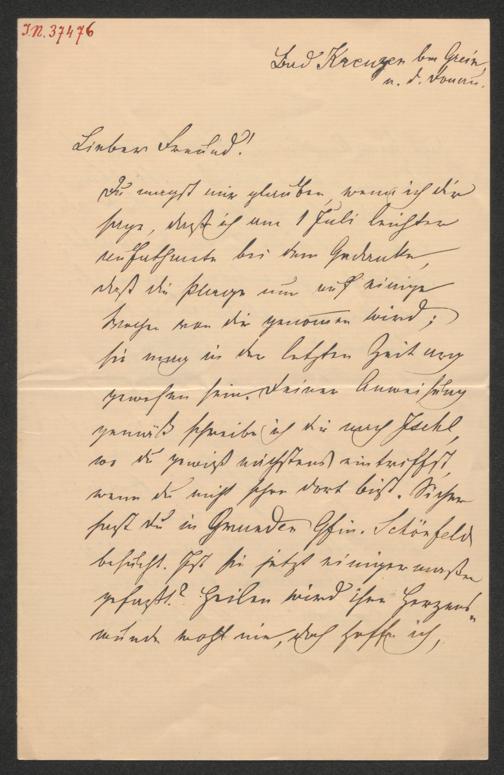 I.N. 37476
Bad Kreuzen bei Grein
a. d. Donau.
Lieber Freund!
Du magst mir glauben, wenn ich dir
sage, daß ich am 1 Juli leichter
aufathmete bei dem Gedanken,
daß die Plage nun auf einige
Wochen von dir genommen wird;
sie mag in der letzten Zeit arg
gewesen sein. Deiner Anweisung
gemäß schreibe ich dir nach Ischl,
wo du gewiß nächstens eintriffst,
wenn du nicht schon dort bist. Sicher
hast du in Gmunden Gfin. Schönfeld
besucht. Ist sie jetzt einigermaßen
gefaßt? Heilen wird ihre Herzens"
wunde wohl nie, doch hoffe ich,